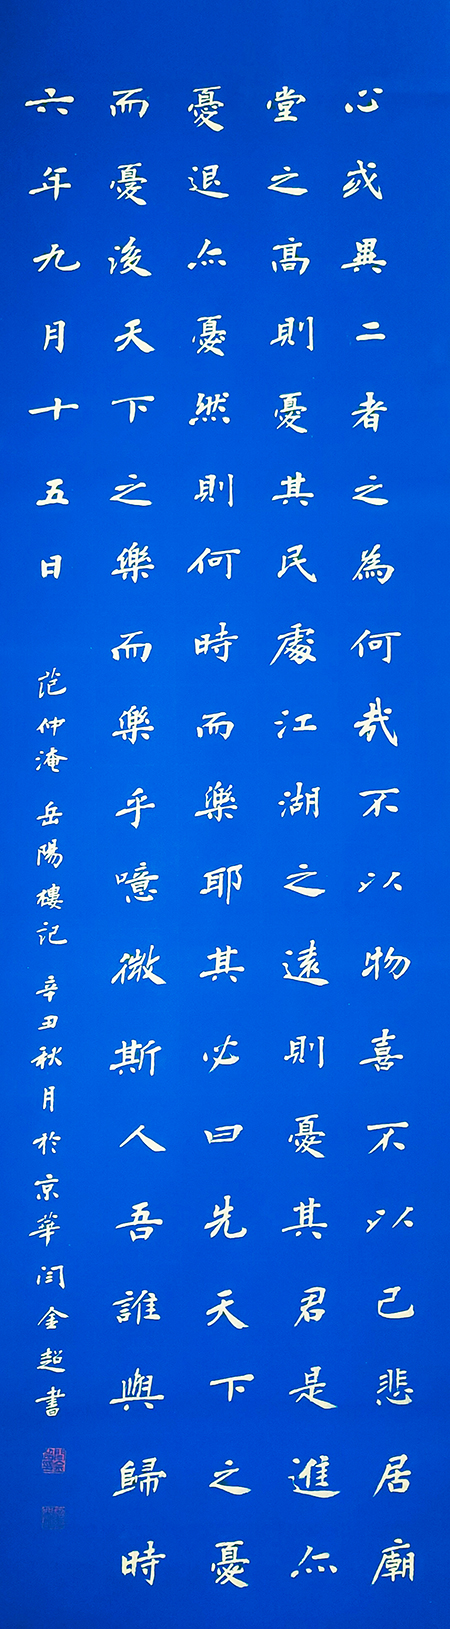 心或異二者之為何哉不以物喜不以己悲居廟
堂之高則憂其民處江湖之遠則憂其君是進亦
憂退亦憂然則何時而樂耶其必曰先天下之憂
而憂後天下之樂而樂乎噫微斯人吾誰與歸時
六年九月十五日
范仲淹岳陽樓記辛丑秋月於京華閆金超書